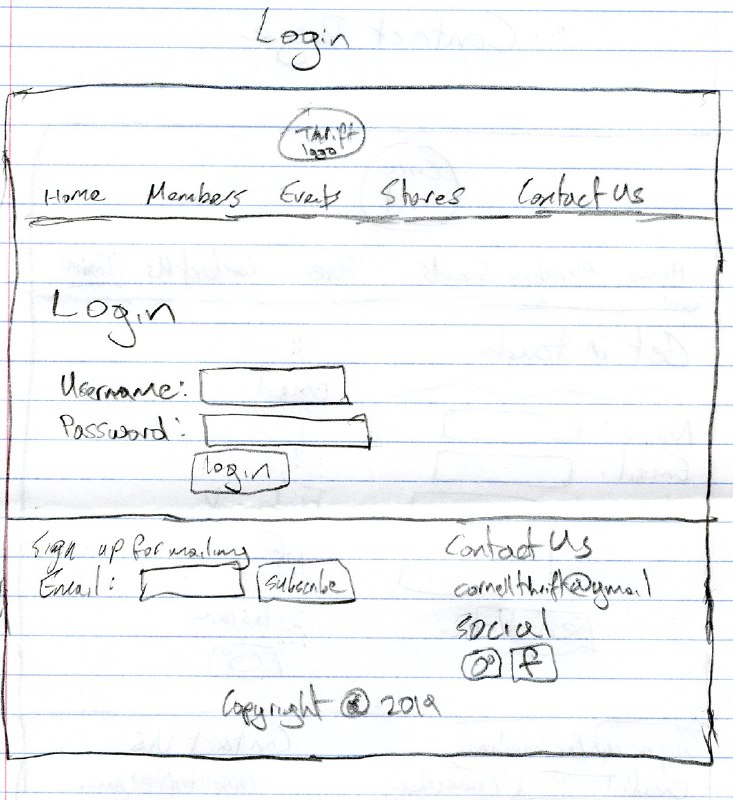 Login
Thrift
logo
Home Members Events Stores Contact Us
Login
Username:
Password:
login
Sign up for mailing
Email: subscribe
Contact Us
cornellthrift@gmail
social
f
Copyright © 2019